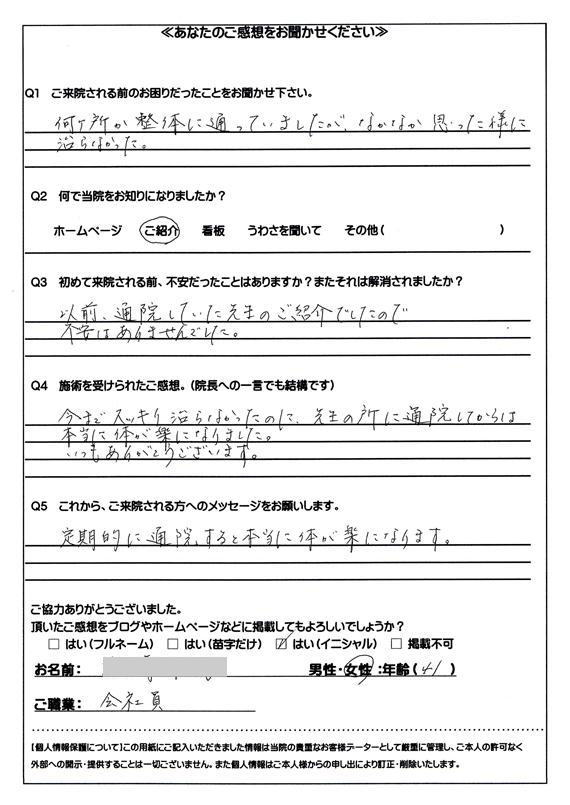 ≪あなたのご感想をお聞かせください≫
Q1 ご来院される前のお困りだったことをお聞かせ下さい。
何ヶ所か整体に通っていましたが、なかなか思った様に
治らなかった。
Q2 何で当院をお知りになりましたか？
ホームページ ご紹介 看板 うわさを聞いて その他( )
Q3 初めて来院される前、不安だったことはありますか？またそれは解消されましたか？
以前、通院していた先生のご紹介でしたので
不安はありませんでした。
Q4 施術を受けられたご感想。(院長への一言でも結構です)
今までスッキリ治らなかったのに、先生の所に通院してからは
本当に体が楽になりました。
いつもありがとうございます。
Q5 これから、ご来院される方へのメッセージをお願いします。
定期的に通院すると本当に体が楽になります。
ご協力ありがとうございました。
頂いたご感想をブログやホームページなどに掲載してもよろしいでしょうか？
□ はい(フルネーム) □ はい(苗字だけ) ☑ はい(イニシャル) □ 掲載不可
お名前： 男性・女性：年齢(41)
ご職業： 会社員
【個人情報保護について】この用紙にご記入いただきました情報は当院の貴重なお客様データーとして厳重に管理し、ご本人の許可なく
外部への開示・提供することは一切ございません。また個人情報はご本人様からの申し出により訂正・削除いたします。